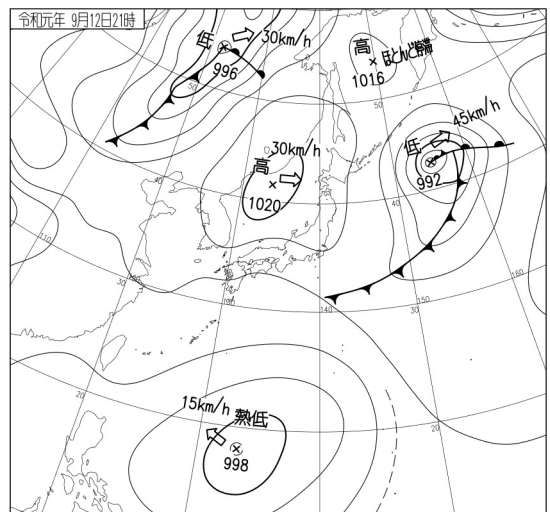 令和元年 9月12日21時
低
30km/h
996
高
ほとんど停滞
1016
50
50
45km/h
低
992
30km/h
高
1020
40
40
110
30
130
140
30
150
160
20
20
15km/h
熱低
998